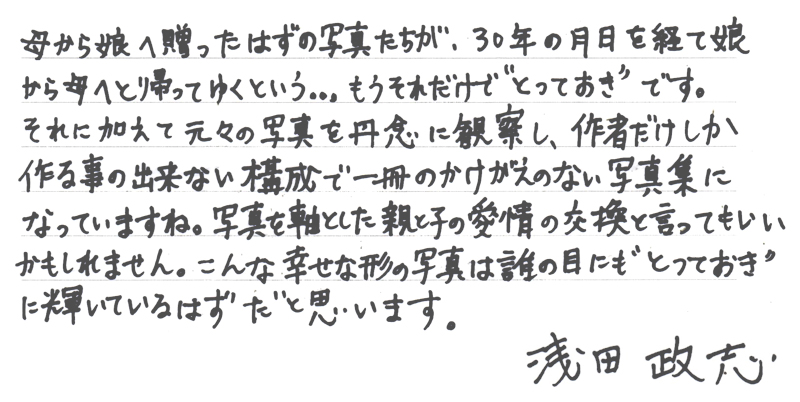 母から娘へ贈ったはずの写真たちが、30年の月日を経て娘
から母へとり帰ってゆくという...もうそれだけで“とっておき”です。
それに加えて元々の写真を丹念に観察し、作者だけしか
作る事の出来ない構成で一冊のかけがえのない写真集に
なっていますね。写真を軸とした親と子の愛情の交換と言ってもいい
かもしれません。こんな幸せな形の写真は誰の目にも“とっておき”
に輝いているはずだと思います。
浅田 政志